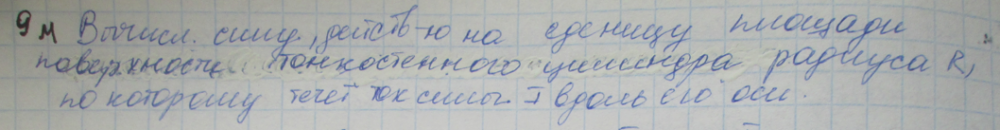 9м Вычисл. силу, действ-ю на еденицу площади
поверхности тонкостенного цилиндра радиуса R,
по которому течёт ток силы I вдоль его оси.